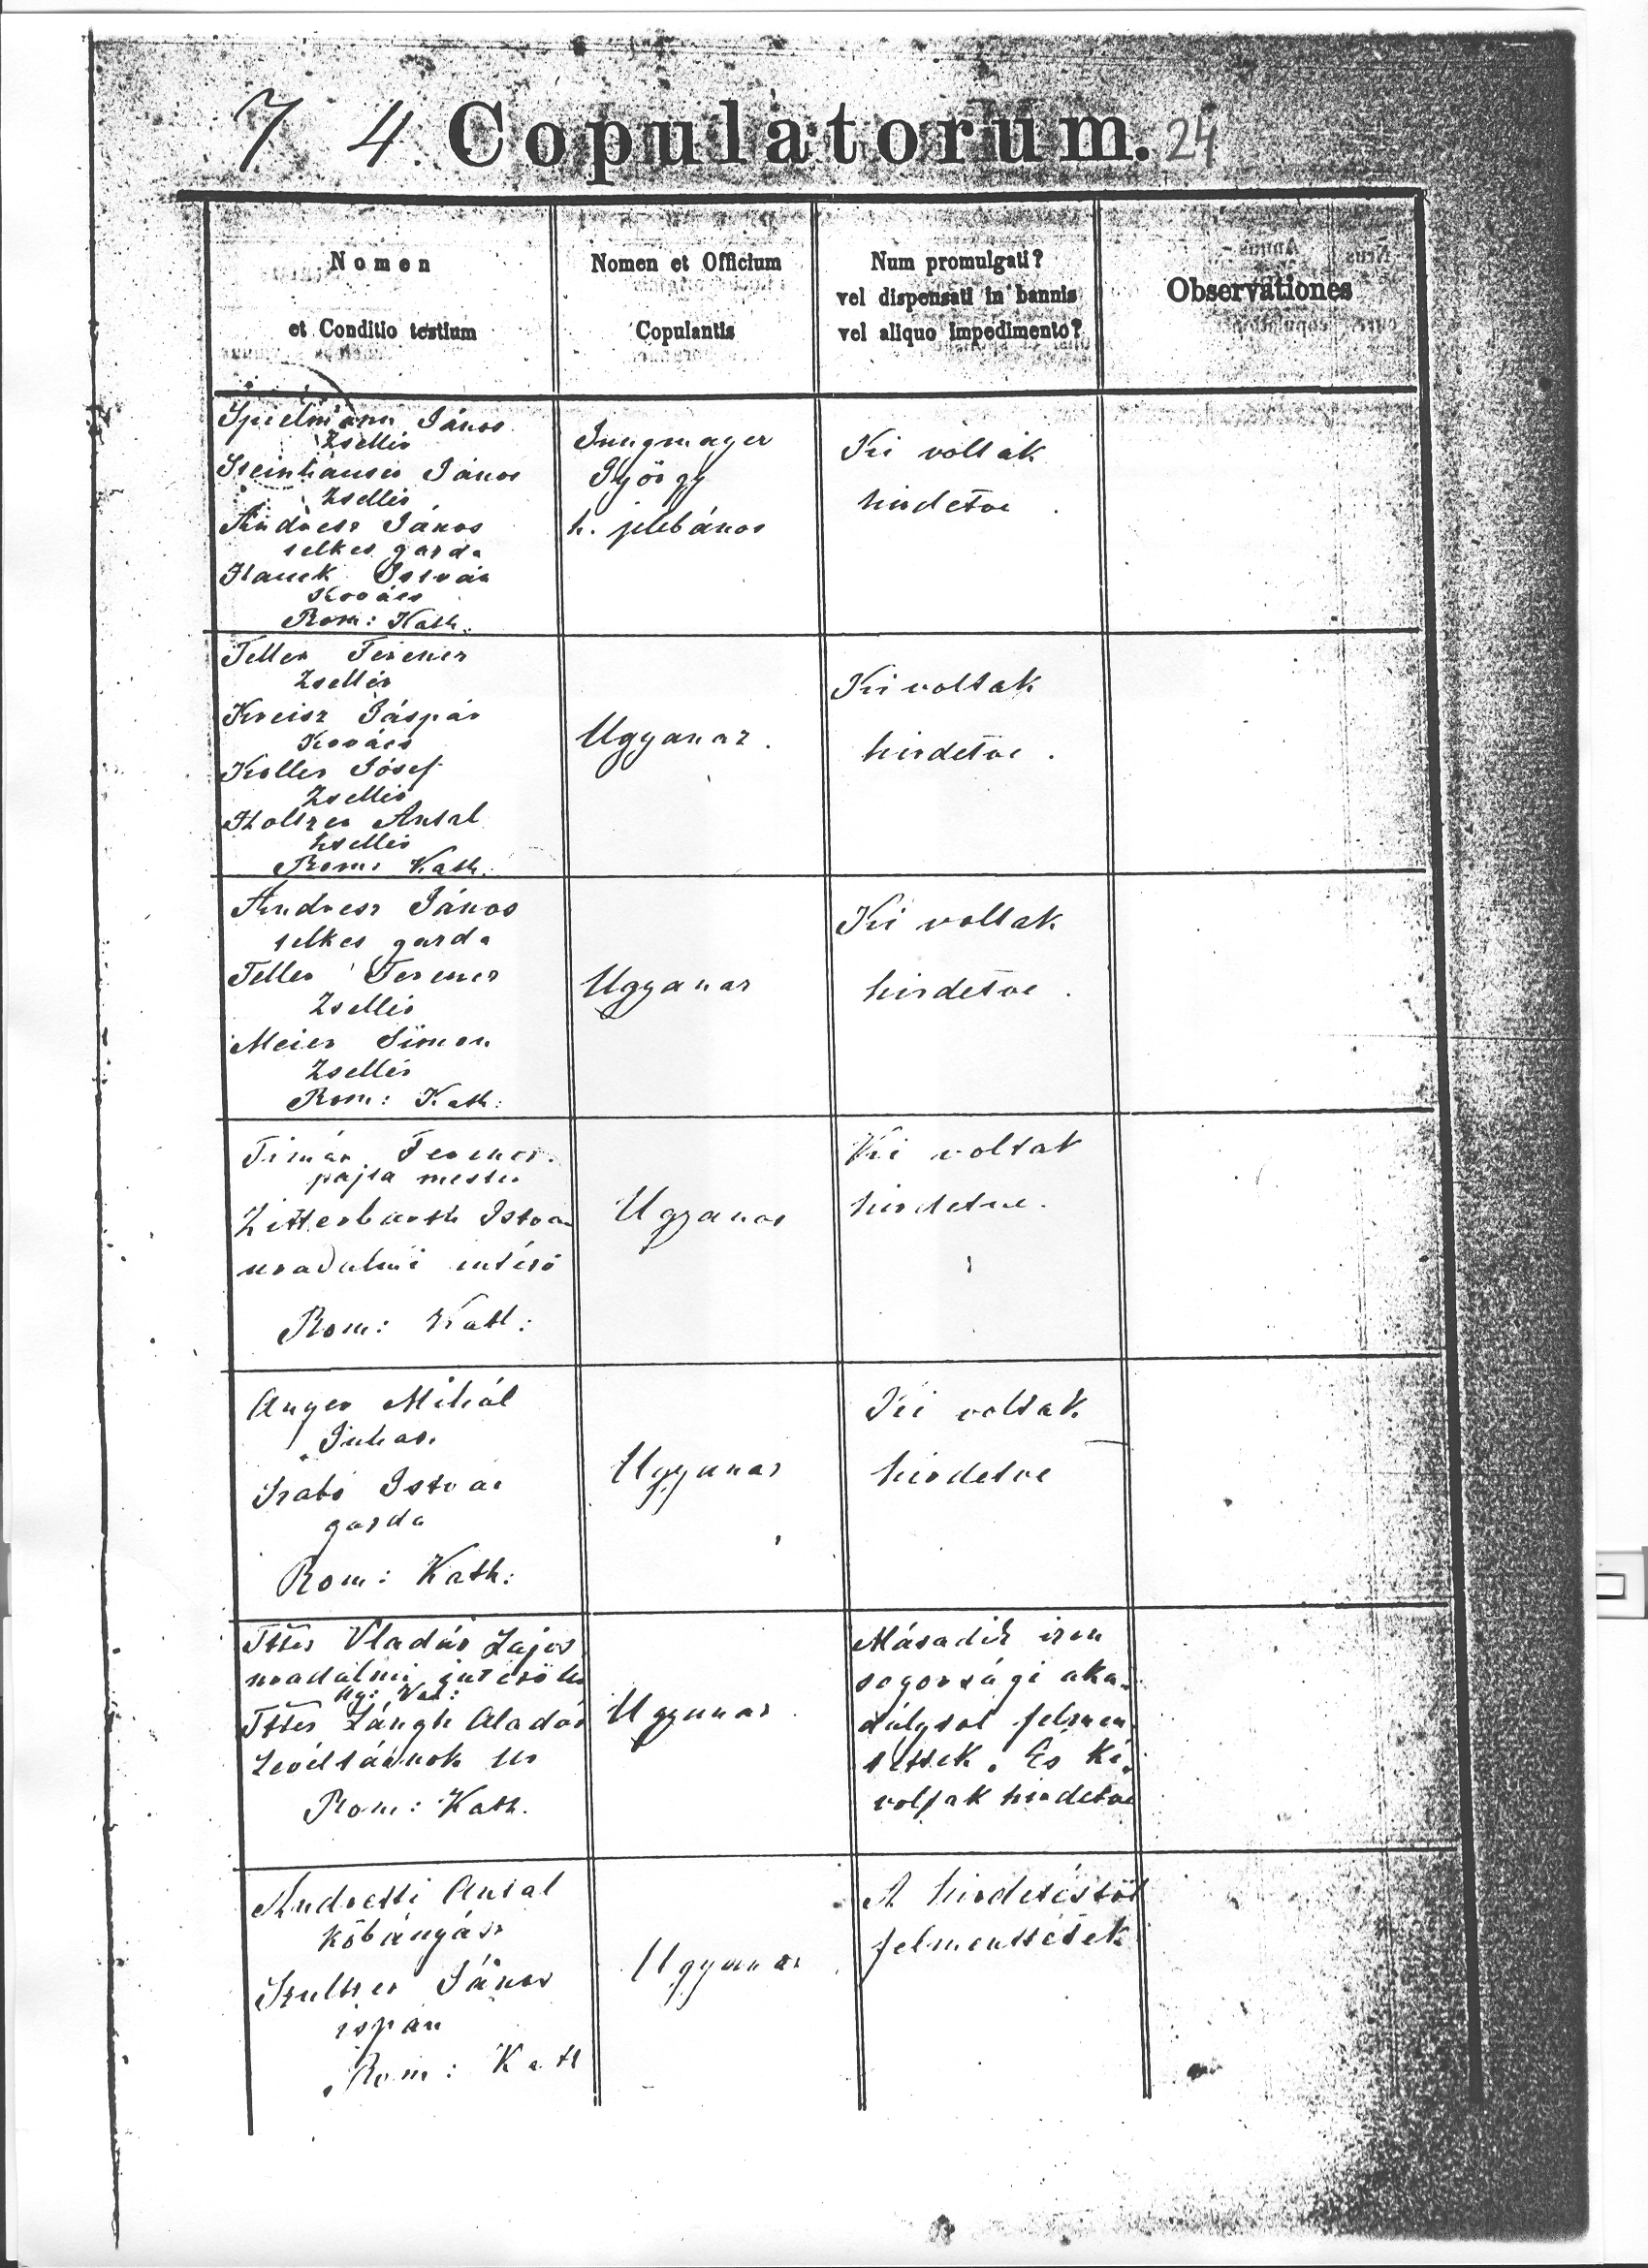 7 4 Copulatorum. 24
Nomen
et Conditio testium
Nomen et Officium
Copulantis
Num promulgati?
vel dispensati in bannis
vel aliquo impedimento?
Observationes
Spielmann János
Zsellér
Steinhauser János
Zsellér
Andresz János
telkes gazda
Hauck István
Kovács
Rom: Kath.
Jungmayer
György
h. plébános
Ki voltak
hirdetve.
Teller Ferencz
Zsellér
Kreisz Gáspár
Kovács
Koller Jósef
Zsellér
Holtzer Antal
Zsellér
Rom: Kath.
Ugyanaz.
Ki voltak
hirdetve.
Andresz János
telkes gazda
Teller Ferencz
Zsellér
Meier Simon
Zsellér
Rom: Kath:
Ugyanaz
Ki voltak
hirdetve.
Timár Ferencz.
pajta mester
Zitterbarth István
uradalmi intéző
Rom: Kath:
Ugyanaz
Ki voltak
hirdetve.
Anger Mihál
Juhász
Szabó István
gazda
Rom: Kath:
Ugyanaz
Ki voltak
hirdetve
Ttes Vladár Lajos
uradalmi intéző Ur
Ttes Lángh Aladár
Levéltárnok Ur
Rom: Kath.
Ugyanaz.
Másadik izen
sogorsági aka-
dálytol felmen
tettek. És ki
voltak hirdetve
Andretti Antal
kőbányász
Szultzer János
ispán
Rom: Kath
Ugyanaz
A hirdetéstöl
felmenttetek